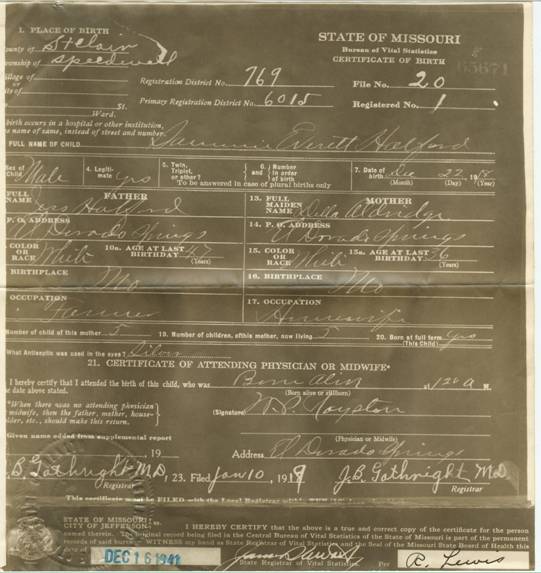 1. PLACE OF BIRTH
STATE OF MISSOURI
Bureau of Vital Statistics
CERTIFICATE OF BIRTH
65671
County of St Clair
Township of Speedwell
Village of
or
City of
Registration District No. 769 File No. 20
Primary Registration District No. 6015 Registered No. 1
St.
Ward.
birth occurs in a hospital or other institution,
name of same, instead of street and number.
FULL NAME OF CHILD Everett Halford
Sex of Child Male
4. Legitimate yes
5. Twin, Triplet, or other?
6. and Number in order of birth
To be answered in case of plural births only
7. Date of birth Dec 22, 1918
(Month) (Day) (Year)
FATHER
FULL NAME Halford
P. O. ADDRESS El Dorado Springs
COLOR OR RACE White 10a. AGE AT LAST BIRTHDAY 47 (Years)
BIRTHPLACE Mo
OCCUPATION Farmer
MOTHER
13. FULL MAIDEN NAME Della Aldridge
14. P. O. ADDRESS El Dorado Springs
15. COLOR OR RACE White 15a. AGE AT LAST BIRTHDAY 36 (Years)
16. BIRTHPLACE Mo
17. OCCUPATION Housewife
Number of child of this mother 5 19. Number of children, of this mother, now living 5 20. Born at full term yes
(This Child)
What Antiseptic was used in the eyes? Silver
21. CERTIFICATE OF ATTENDING PHYSICIAN OR MIDWIFE*
I hereby certify that I attended the birth of this child, who was Born alive at 120 a M.
the date above stated. (Born alive or stillborn)
*When there was no attending physician
midwife, then the father, mother, house-
older, etc., should make this return.
(Signature) Royston
(Physician or Midwife)
Given name added from supplemental report
, 19 Address El Dorado Springs
J.B. Gathright M.D. 23. Filed Jan 10, 1919 J.B. Gathright M.D.
Registrar Registrar
This certificate must be FILED with the Local Registrar
STATE OF MISSOURI
CITY OF JEFFERSON
ss. I HEREBY CERTIFY that the above is a true and correct copy of the certificate for the person
named therein. The original record being filed in the Central Bureau of Vital Statistics of the State of Missouri is part of the permanent
records of said bureau - WITNESS my hand as State Registrar of Vital Statistics and the Seal of the Missouri State Board of Health this
date of DEC 16 1941
State Registrar of Vital Statistics Per R. Lewis